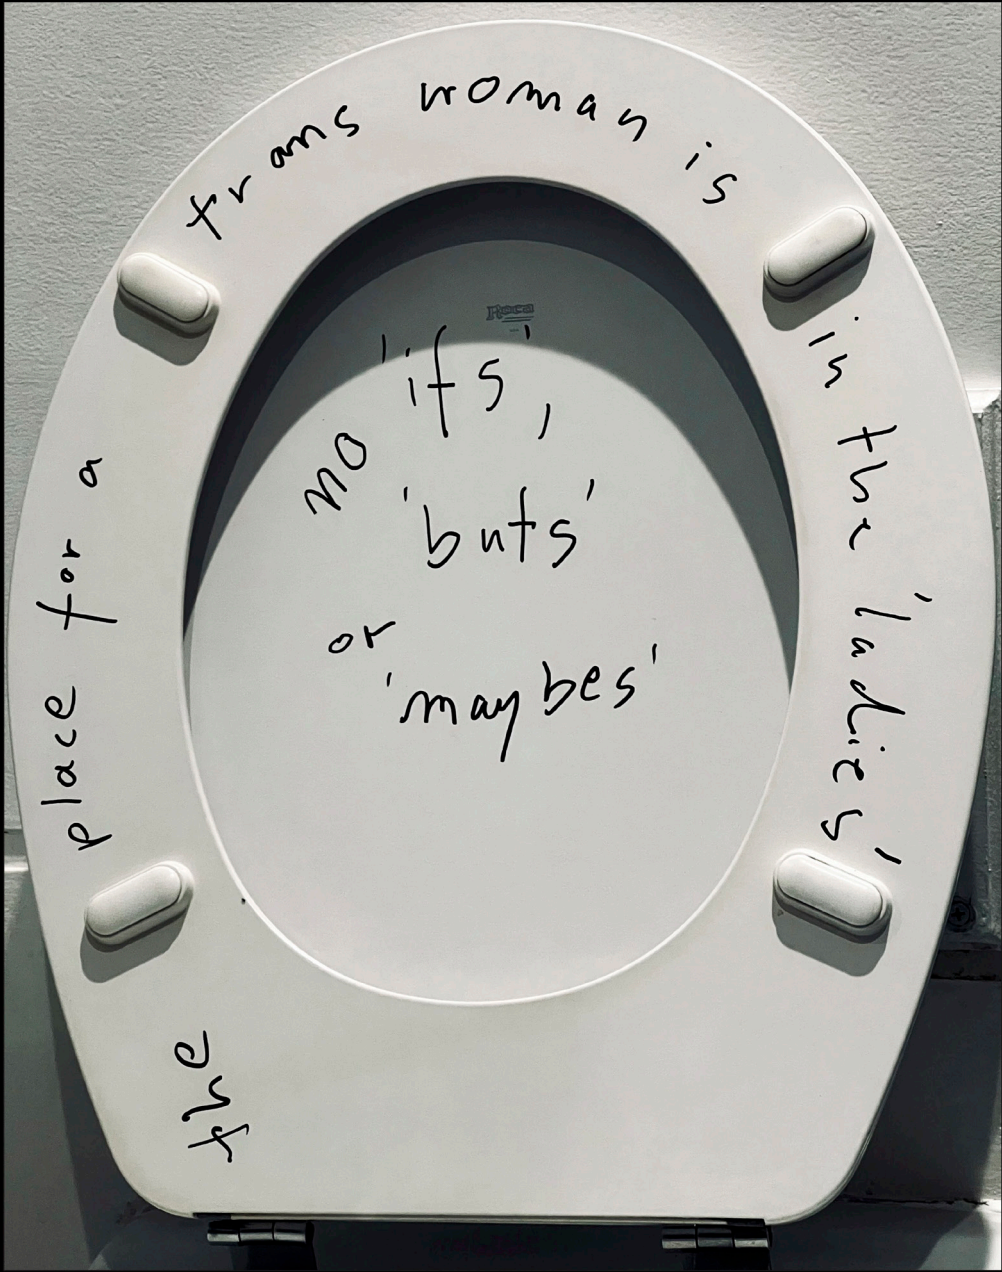 the place for a trans woman is in the 'ladies'
Roca
no 'ifs',
'buts'
or
'maybes'